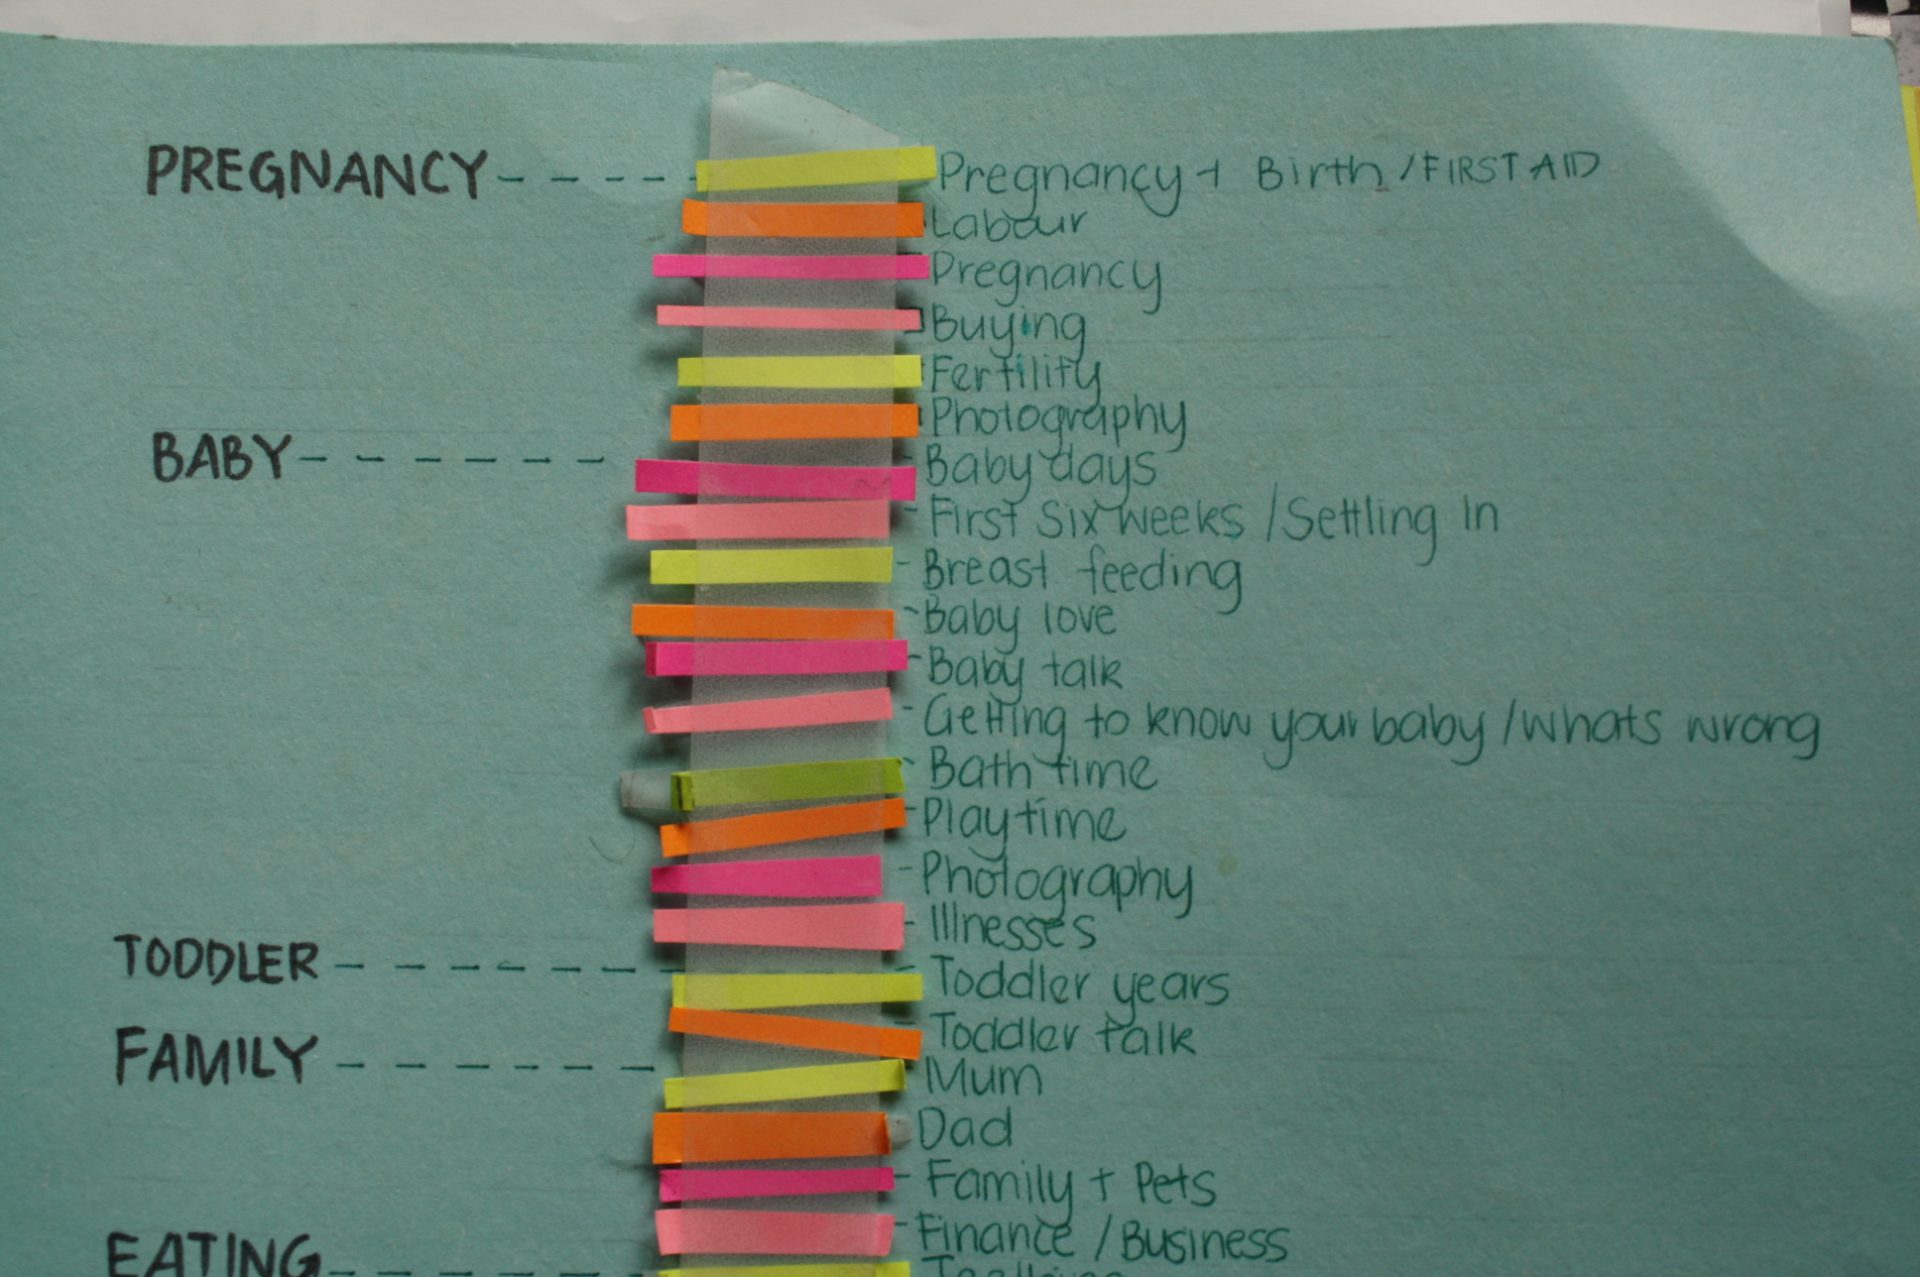 PREGNANCY - - - - Pregnancy + Birth / FIRST AID
Labour
Pregnancy
Buying
Fertility
Photography
BABY - - - - - - Baby days
- First Six weeks / Settling In
- Breast feeding
- Baby love
- Baby talk
- Getting to know your baby / whats wrong
- Bath time
- Playtime
- Photography
- Illnesses
TODDLER - - - - - - Toddler years
- Toddler talk
FAMILY - - - - - - Mum
Dad
- Family + Pets
- Finance / Business
EATING - - - - - -